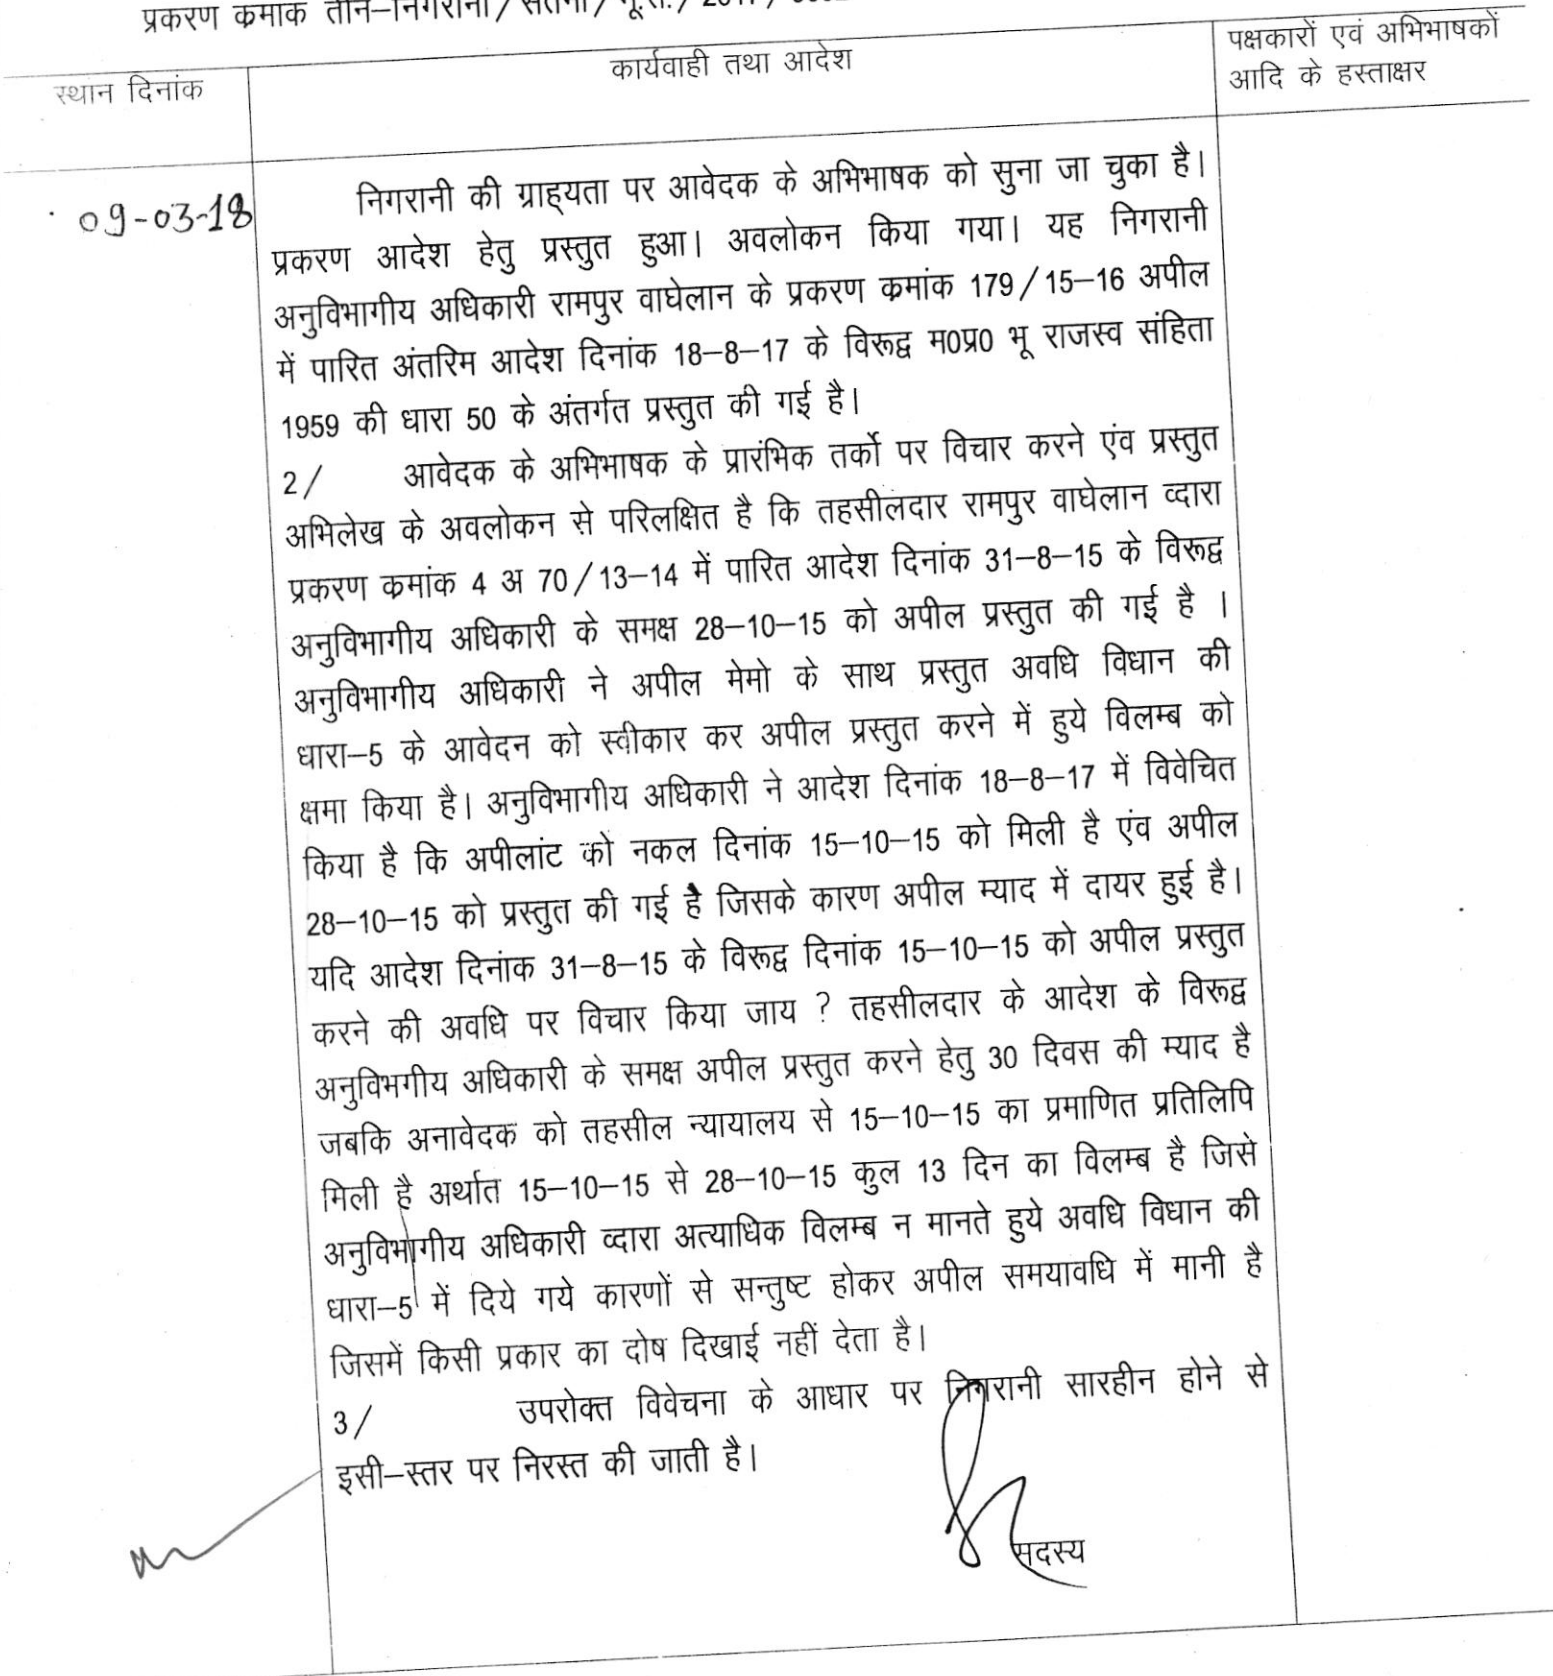 प्रकरण क्रमांक तीन–निगरानी/सतना/भू.रा./2017/
स्थान दिनांक
कार्यवाही तथा आदेश
पक्षकारों एवं अभिभाषकों
आदि के हस्ताक्षर
09-03-18
निगरानी की ग्राह्यता पर आवेदक के अभिभाषक को सुना जा चुका है।
प्रकरण आदेश हेतु प्रस्तुत हुआ। अवलोकन किया गया। यह निगरानी
अनुविभागीय अधिकारी रामपुर वाघेलान के प्रकरण क्रमांक 179/15–16 अपील
में पारित अंतरिम आदेश दिनांक 18–8–17 के विरूद्व म0प्र0 भू राजस्व संहिता
1959 की धारा 50 के अंतर्गत प्रस्तुत की गई है।
2/ आवेदक के अभिभाषक के प्रारंभिक तर्को पर विचार करने एंव प्रस्तुत
अभिलेख के अवलोकन से परिलक्षित है कि तहसीलदार रामपुर वाघेलान व्दारा
प्रकरण क्रमांक 4 अ 70/13–14 में पारित आदेश दिनांक 31–8–15 के विरूद्व
अनुविभागीय अधिकारी के समक्ष 28–10–15 को अपील प्रस्तुत की गई है ।
अनुविभागीय अधिकारी ने अपील मेमो के साथ प्रस्तुत अवधि विधान की
धारा–5 के आवेदन को स्वीकार कर अपील प्रस्तुत करने में हुये विलम्ब को
क्षमा किया है। अनुविभागीय अधिकारी ने आदेश दिनांक 18–8–17 में विवेचित
किया है कि अपीलांट को नकल दिनांक 15–10–15 को मिली है एंव अपील
28–10–15 को प्रस्तुत की गई है जिसके कारण अपील म्याद में दायर हुई है।
यदि आदेश दिनांक 31–8–15 के विरूद्व दिनांक 15–10–15 को अपील प्रस्तुत
करने की अवधि पर विचार किया जाय ? तहसीलदार के आदेश के विरूद्व
अनुविभगीय अधिकारी के समक्ष अपील प्रस्तुत करने हेतु 30 दिवस की म्याद है
जबकि अनावेदक को तहसील न्यायालय से 15–10–15 का प्रमाणित प्रतिलिपि
मिली है अर्थात 15–10–15 से 28–10–15 कुल 13 दिन का विलम्ब है जिसे
अनुविभागीय अधिकारी व्दारा अत्याधिक विलम्ब न मानते हुये अवधि विधान की
धारा–5 में दिये गये कारणों से सन्तुष्ट होकर अपील समयावधि में मानी है
जिसमें किसी प्रकार का दोष दिखाई नहीं देता है।
3/ उपरोक्त विवेचना के आधार पर निगरानी सारहीन होने से
इसी–स्तर पर निरस्त की जाती है।
सदस्य